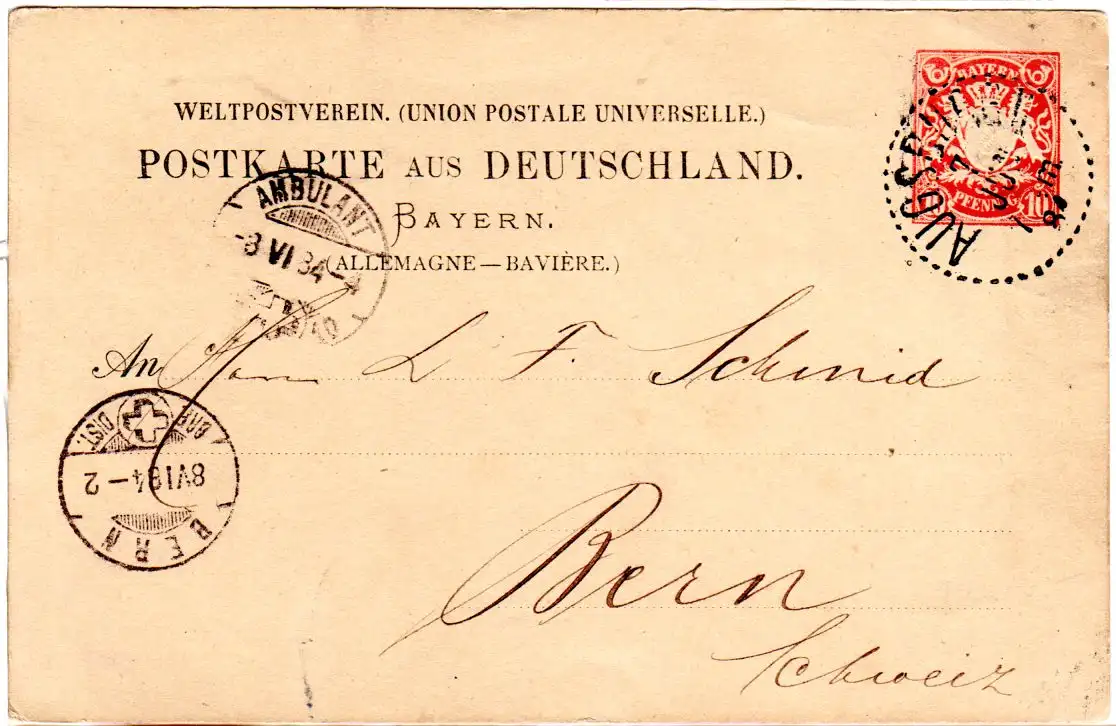 WELTPOSTVEREIN. (UNION POSTALE UNIVERSELLE.)
POSTKARTE AUS DEUTSCHLAND.
BAYERN.
(ALLEMAGNE—BAVIÈRE.)
BAYERN
PFENNIG 10
AUGSBURG
AMBULANT
-8 VI 84-
An Herrn L F. Schmid
BRF. DIST.
8 VI 84-2
BERN
Bern
Schweiz